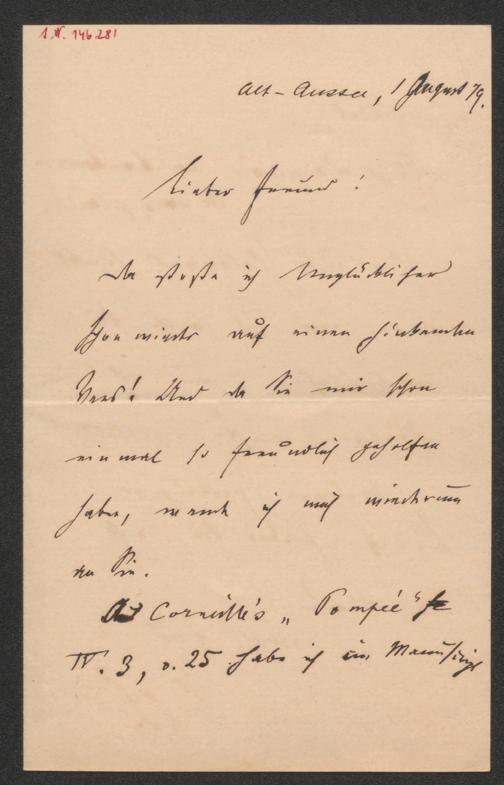 I.N. 146.281
Alt-Aussee, 1 August 79.
Lieber Freund!
Da stoße ich Unglücklicher
schon wieder auf einen hinkenden
Vers! Und da Sie mir schon
einmal so freundlich geholfen
haben, wende ich mich wiederum
an Sie.
Corneille's „Pompée"
IV. 3, v. 25 habe ich im Manuscript